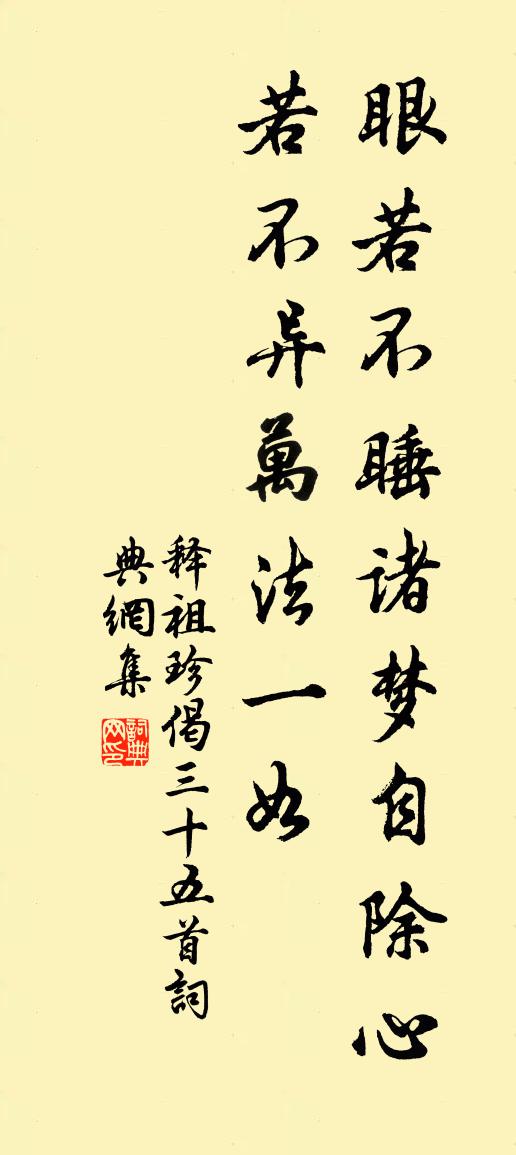 眼若不睡诸梦自除心
若不异萬法一如
释祖珍偈三十五首詞
典網集
詞典網印